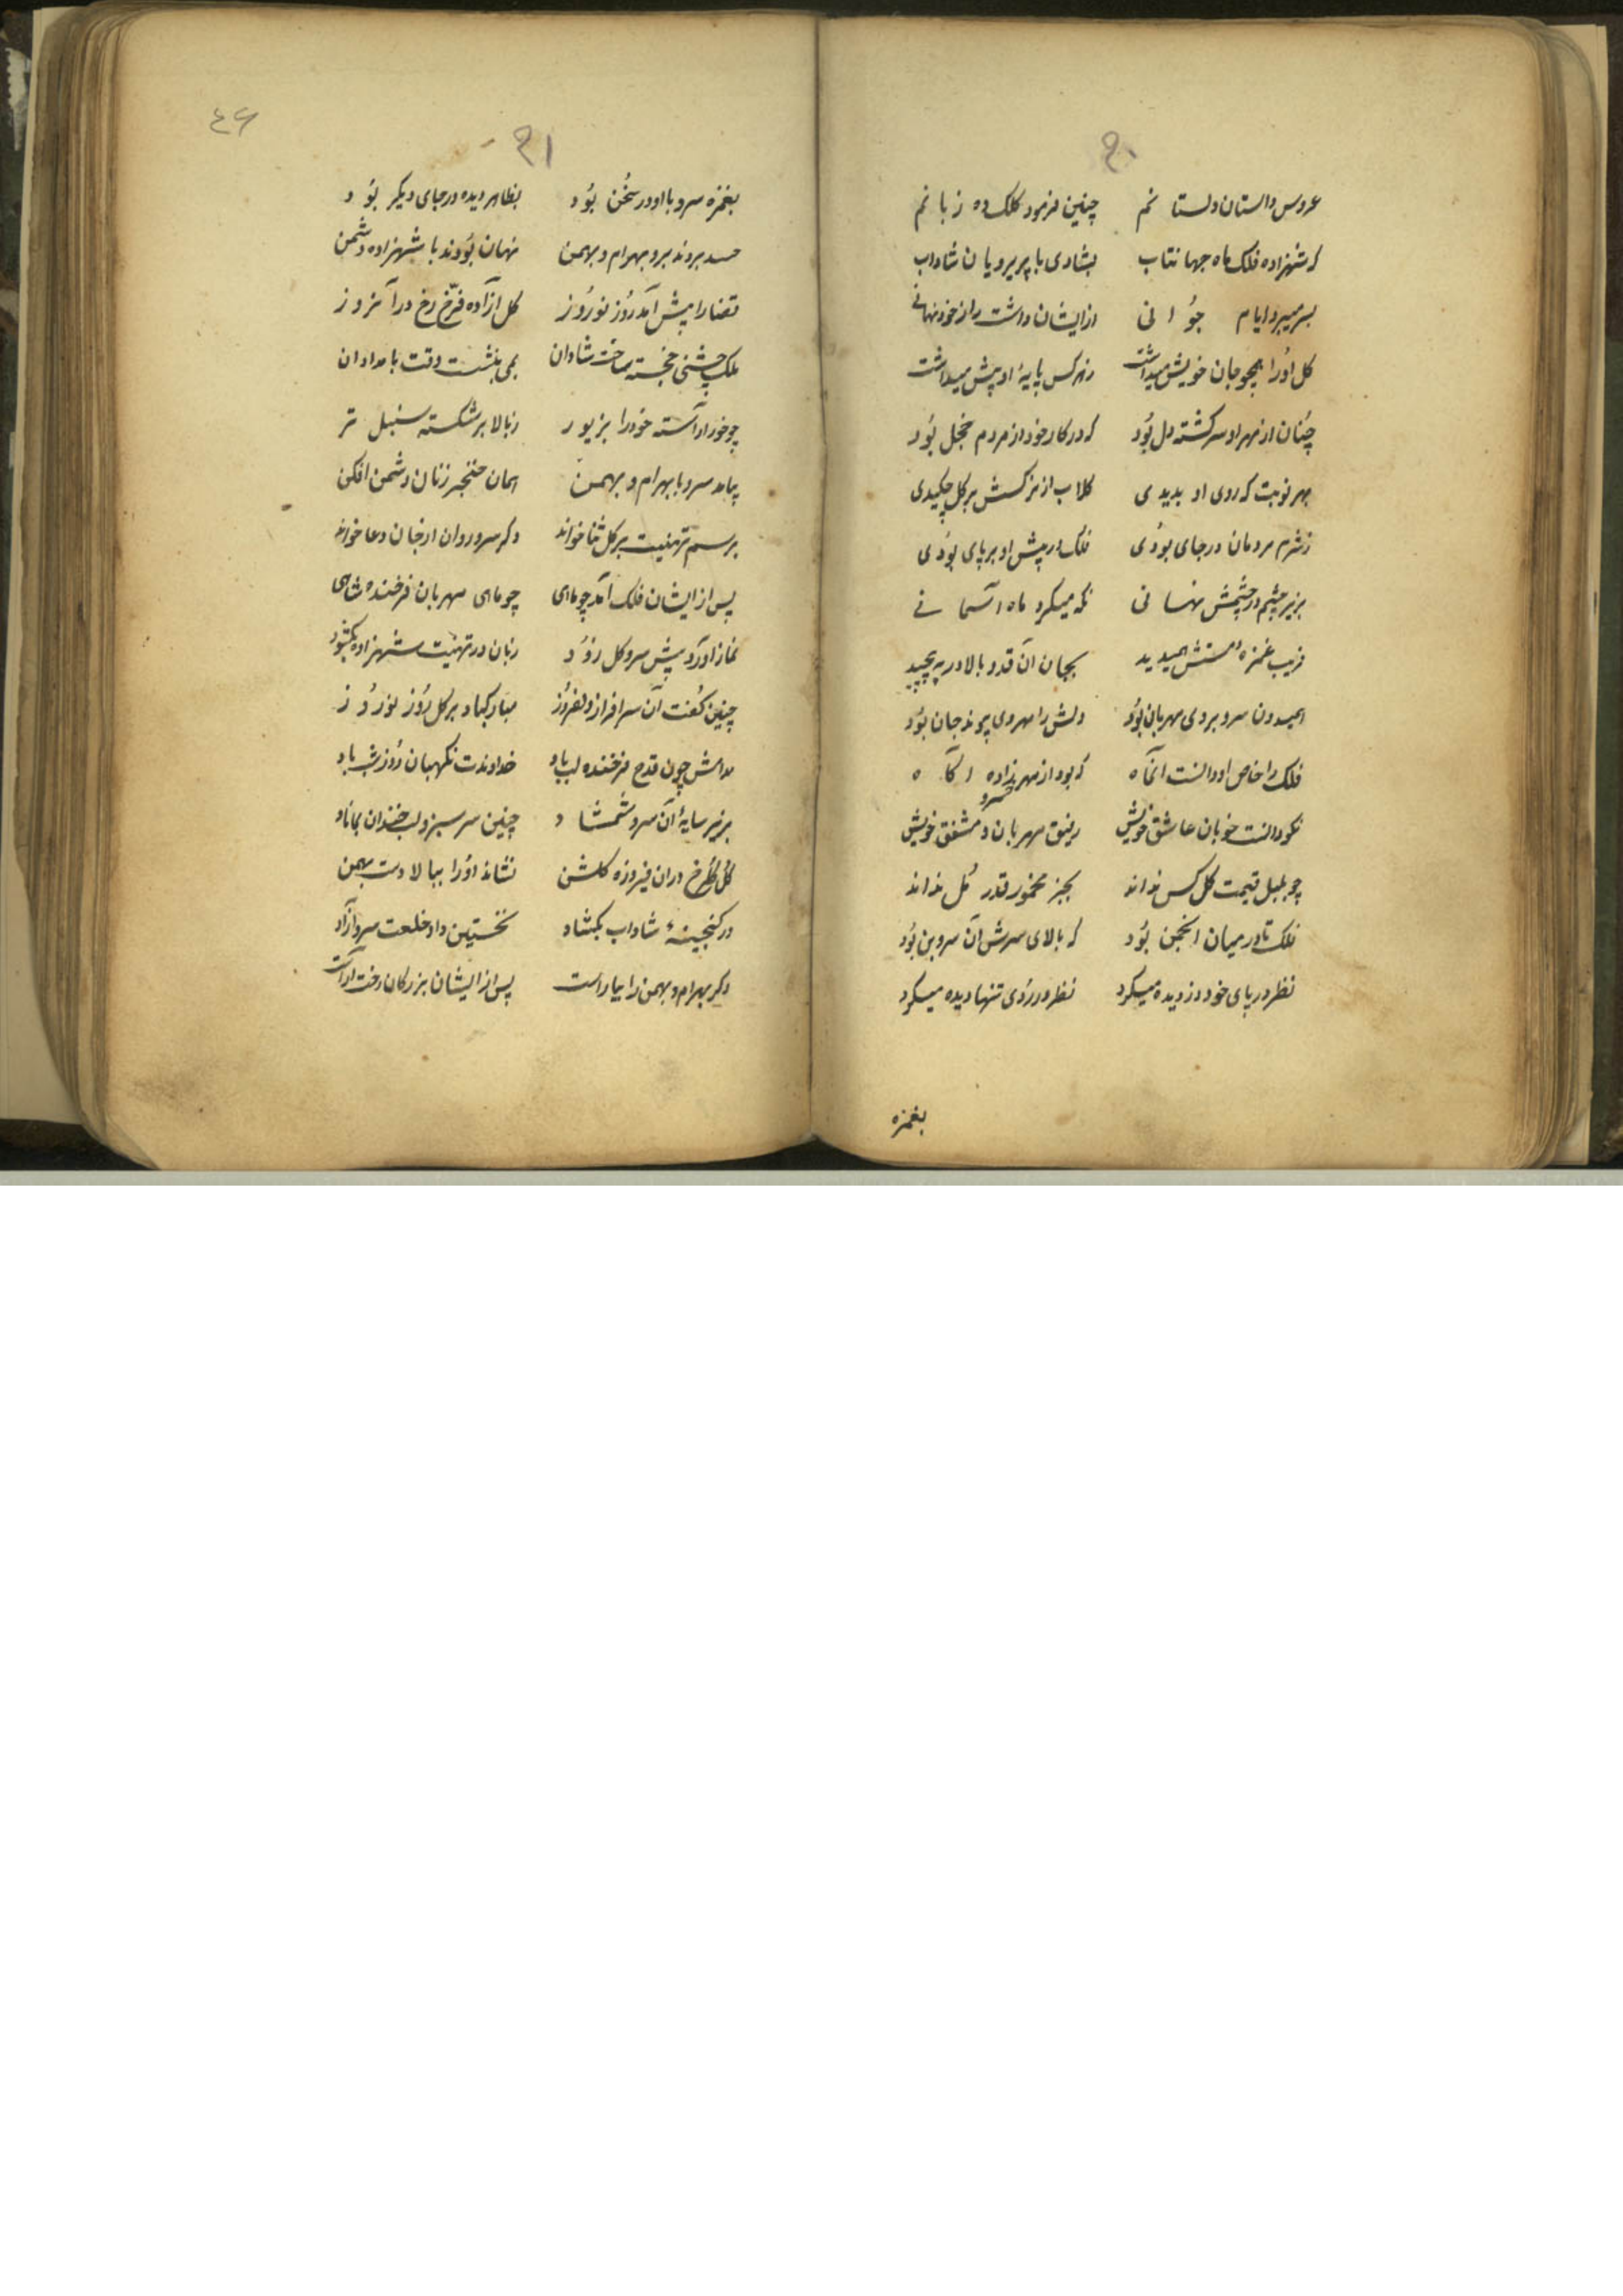 ۹۰
عروس داستان دلستانم چنین فرمود کلک ده زبانم
که شهزاده فلک ماه جهانتاب بشادی با پریرویان شاداب
بسر میبرد ایام جوانی ازایشان داشت راز خود نهانے
گل اورا همچو جان خویش میداشت زهر کس پایهٔ او پیش میداشت
چنان از مهر او سرگشته دل بود که در کار خود از مردم خجل بود
بهر نوبت که روی او بدیدی گلاب از نرگسش بر گل چکیدی
زشرم مردمان در جای بودی فلک در پیش او بر پای بودی
بزیر چشم در چشمش نهانی نگه میکرد ماه آسمانے
فریب غمزهٔ مستش همیدید بجان آن قد و بالا در به پیچید
همیدون سرو بروی مهربان بود دلش را مهر وی پیوند جان بود
فلک را خاص او دانست آنگاه که بود از مهر شهزاده آگاه
نکو دانست خوبان عاشق خویش رفیق مهربان و مشفق خویش
چو بلبل قیمت گل کس نداند بجز مخمور قدر مل نداند
فلک تا در میان انجمن بود که بالای سرش آن سروبن بود
نظر در پای خود دزدیده میکرد نظر در روی تنها دیده میکرد
بغمزه
۴۶
۹۱
بغمزه سرو با او در سخن بود بظاهر دیده در جای دیگر بود
حسد بردند برو بهرام و بهمن نهان بودند با شهزاده دشمن
قضا را پیش آمد روز نوروز گل آزاده فرخ رخ در آنروز
ملک جشنی خجسته ساخت شادان بمی بنشست وقت بامدادان
چو خور آراسته خود را بزیور زبالا بر شکسته سنبل تر
بیامد سرو با بهرام و بهمن همان خنجر زنان دشمن افکن
برسم تهنیت بر گل ثنا خواند دگر سرو روان از جان دعا خواند
پس از ایشان فلک آمد چو ماهی چو ماهی مهربان فرخنده شاهی
نماز آورد پیش سرو گل زود زبان در تهنیت شهزاده بگشود
چنین گفت آن سرافراز دلفروز مبارکباد بر گل روز نوروز
مدامش چون قدح فرخنده لب باد خداوندت نگهبان روز و شب باد
بزیر سایهٔ آن سرو شمشاد چنین سرسبز و لب خندان بماناد
گل گلرخ دران فیروزه گلشن نشاند اورا ببالا دست بهمن
در گنجینهٔ شاداب بگشاد نخستین داد خلعت سرو آزاد
دگر بهرام و بهمن را بیاراست پس از ایشان بزرگان رخت آراست